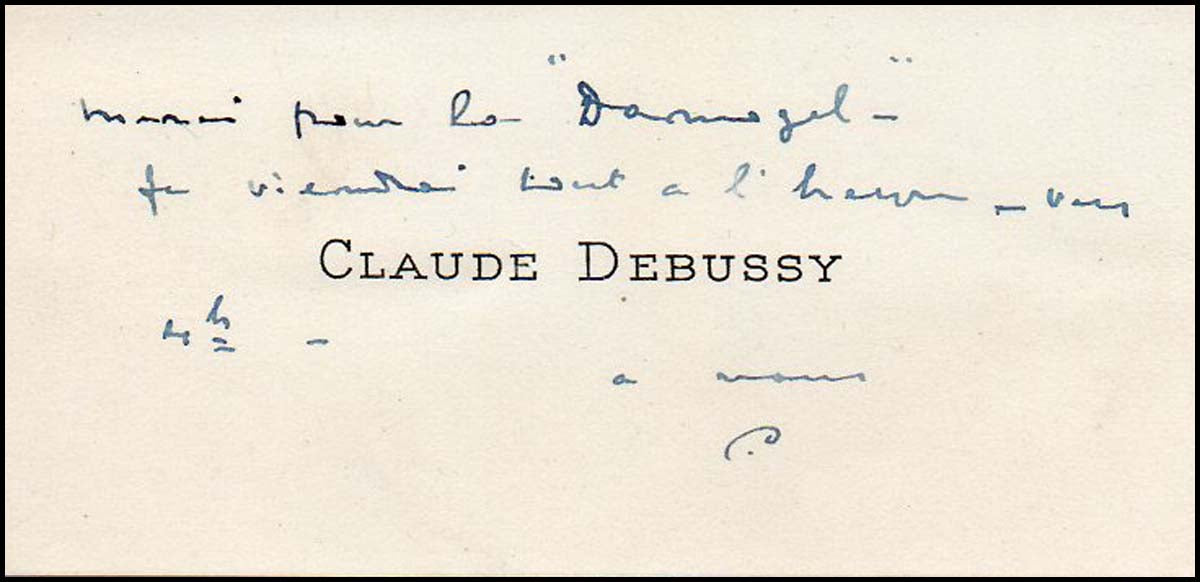 merci pour la "Darmogel-"
Je viendrai tout a l'heure - vers
CLAUDE DEBUSSY
4h -
a vous
C.